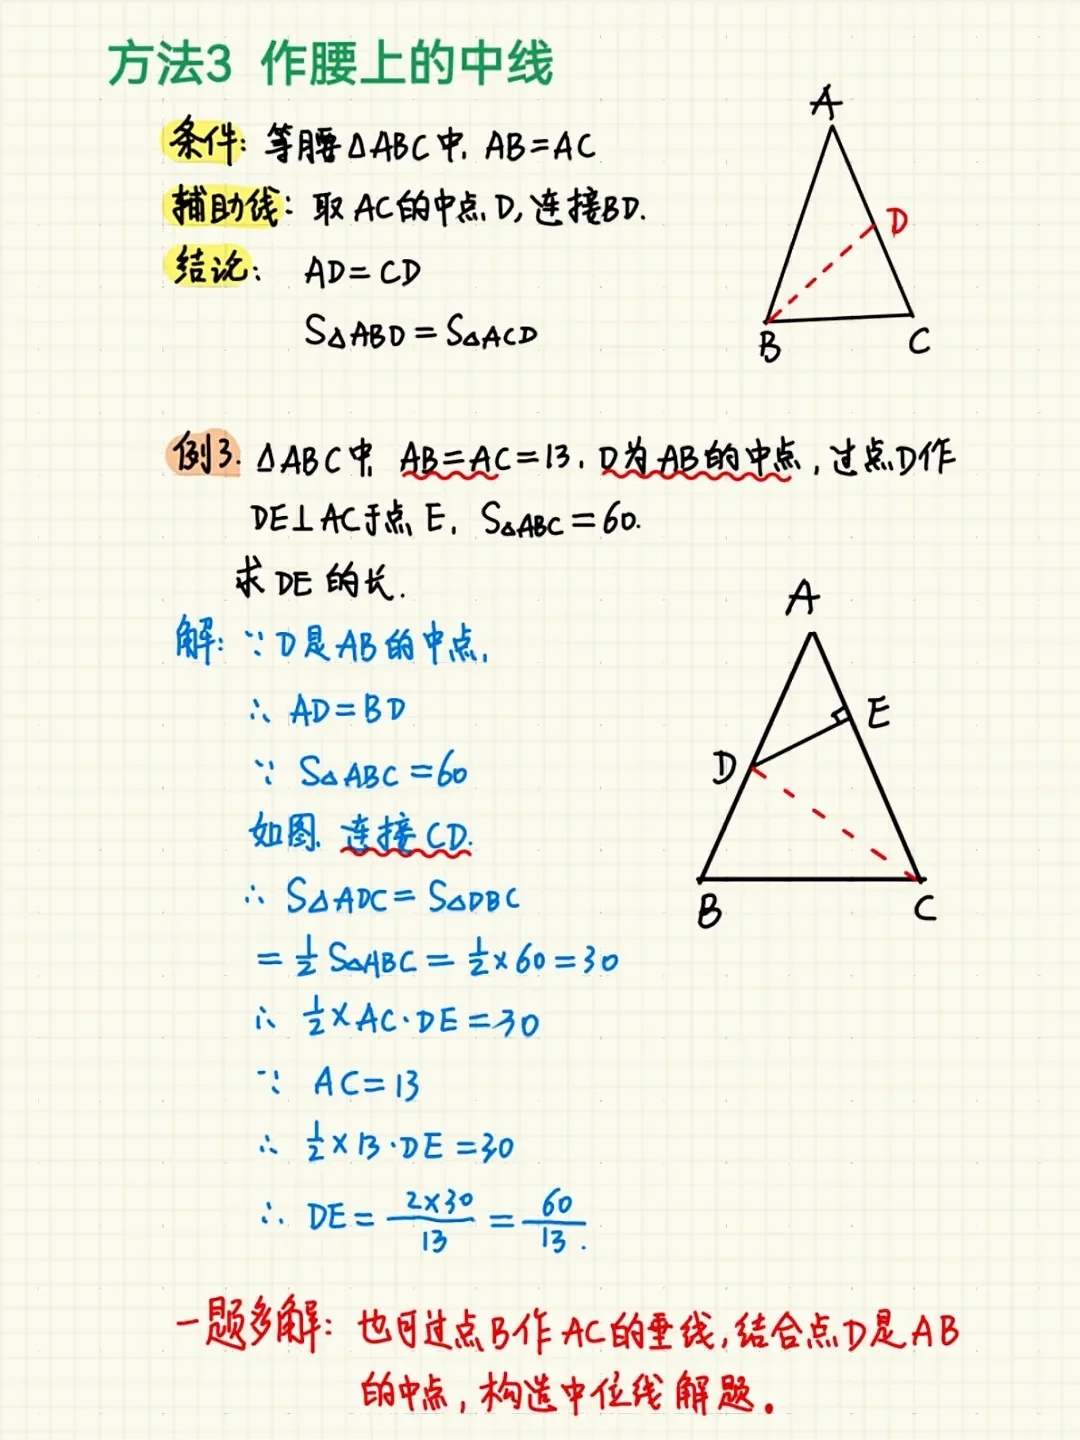 方法3 作腰上的中线
条件: 等腰△ABC中, AB=AC
辅助线: 取AC的中点D,连接BD.
结论: AD=CD
S△ABD=S△ACD
A
D
B
C
例3. △ABC中, AB=AC=13, D为AB的中点,过点D作
DE⊥AC于点E, S△ABC=60.
求DE的长.
解: ∵D是AB的中点,
∴ AD=BD
∵ S△ABC=60
如图, 连接CD.
∴ S△ADC=S△DBC
=1/2 S△ABC=1/2×60=30
∴ 1/2×AC·DE=30
∵ AC=13
∴ 1/2×13·DE=30
∴ DE=2×30/13=60/13.
A
E
D
B
C
一题多解: 也可过点B作AC的垂线,结合点D是AB
的中点,构造中位线解题。